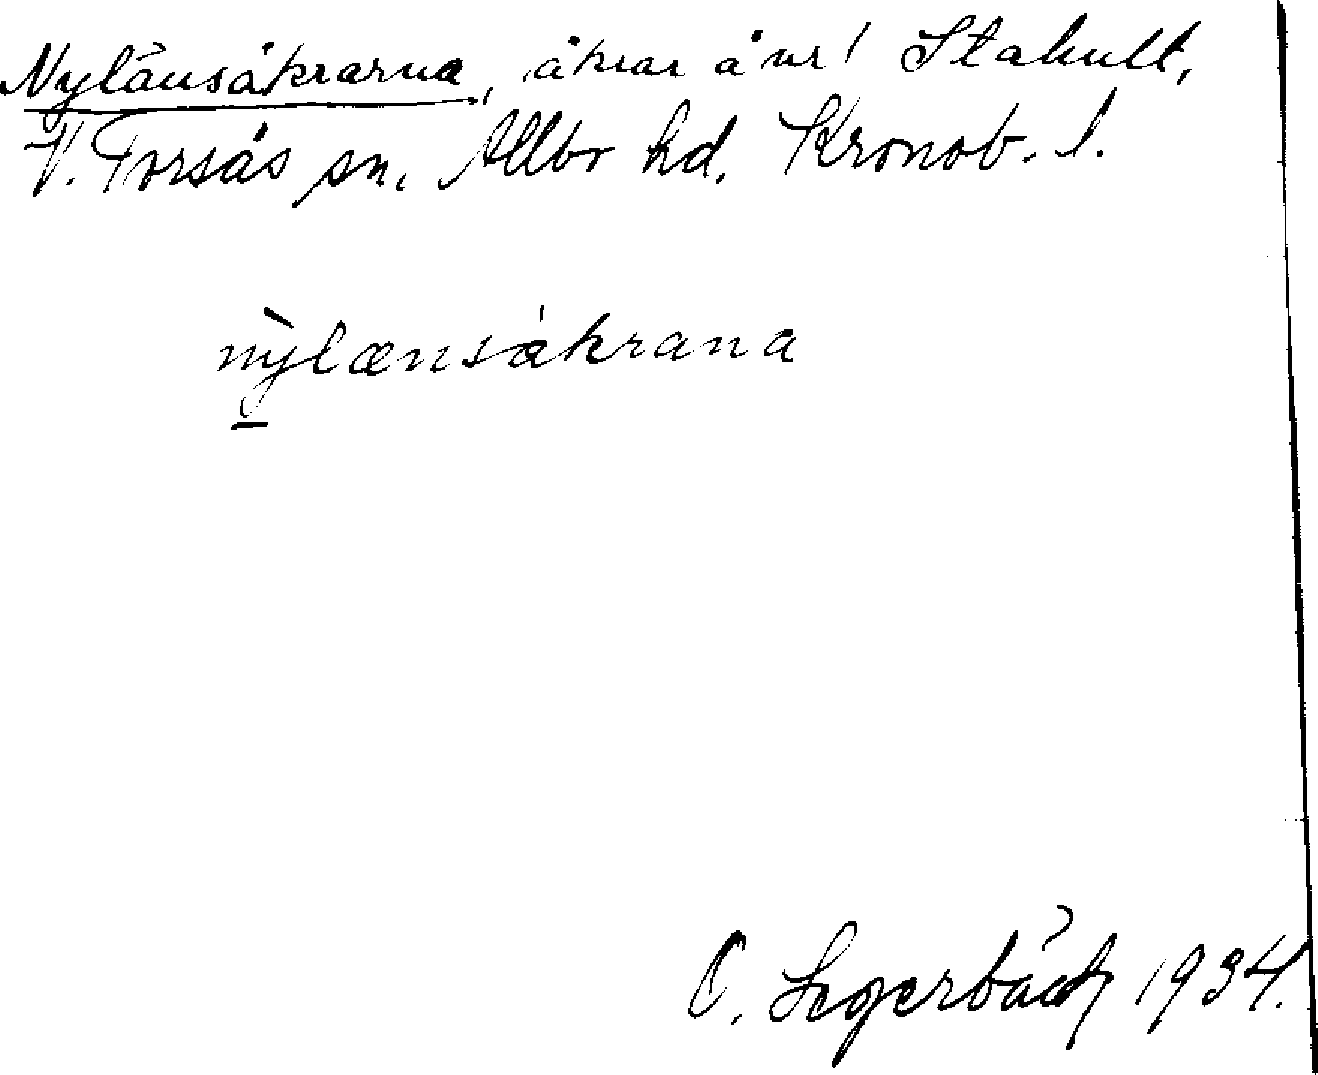 Nylänsåkrarna, åkrar å nr 1 Stakult,
V. Torsås sn, Allbo hd, Kronob. l.
nỳlænsåkrana
O. Segerbäck 1934.